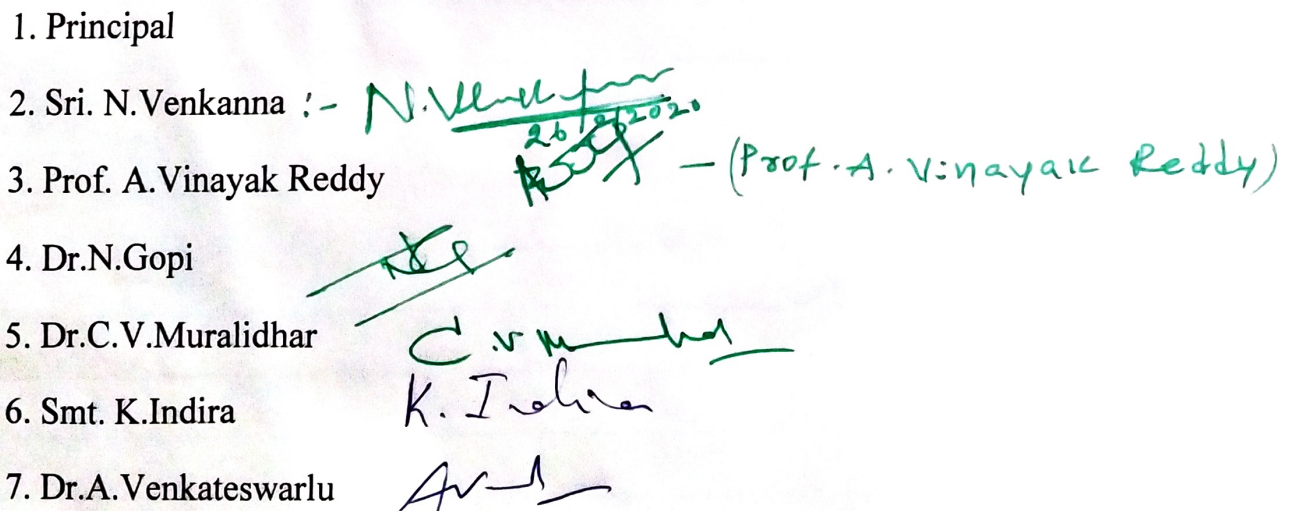 1. Principal
2. Sri. N.Venkanna :- N.Venkanna
26/2/2020
3. Prof. A.Vinayak Reddy — (Prof. A. Vinayak Reddy)
4. Dr.N.Gopi
5. Dr.C.V.Muralidhar C.V
6. Smt. K.Indira K. Indira
7. Dr.A.Venkateswarlu